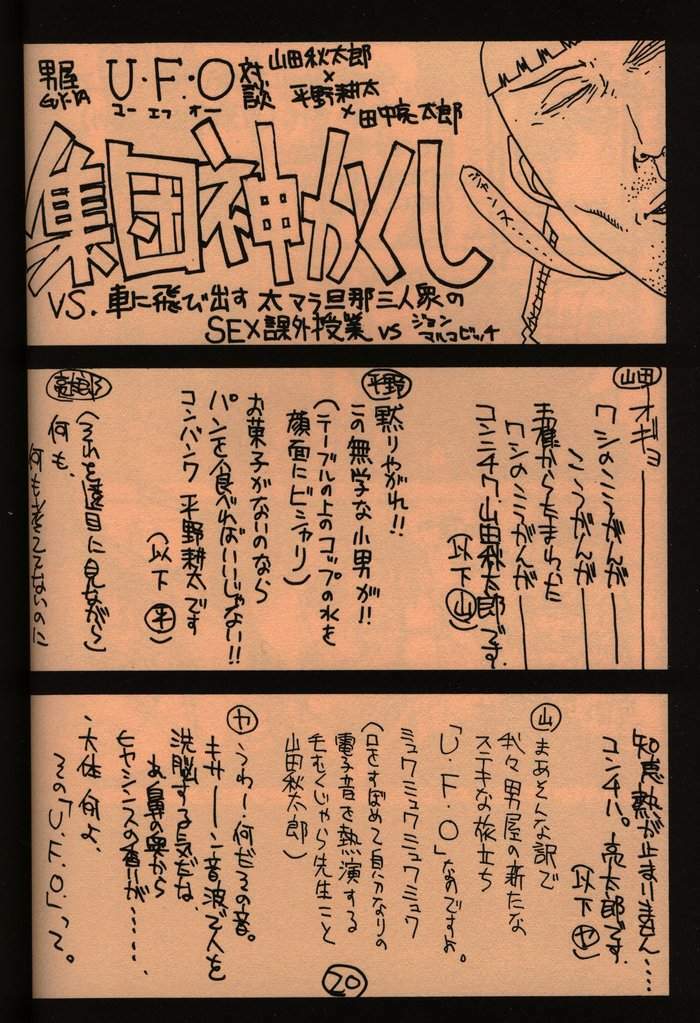 男屋
GUY-YA
U・F・O
ユー エフ オー
対談
山田秋太郎
×
平野耕太
×田中亮太郎
集団神かくし
VS. 車に飛び出す 太マラ旦那三人衆の
SEX課外授業 VS ジョン
マルコビッチ
山田
オギョ――――
ワシのこうがんが――
こうがんが――
ワシのこうがんが――
王様からたまわった
コンニチワ、山田秋太郎です。
(以下 山)
平野
黙りやがれ!!
この無学な小男が!!
(テーブルの上のコップの水を
顔面にビシャリ)
お菓子がないのなら
パンを食べればいいじゃない!!
コンバンワ 平野耕太です
(以下 平)
亮太郎
(それを遠目に見ながら)
何も、
何も考えてないのに
知恵熱が止まりません……
コンチハ。亮太郎です。
(以下 ヤ)
山
まあそんな訳で
我々男屋の新たな
ステキな旅立ち
「U・F・O」なのですよ。
ミュウミュウミュウミュウ
(口をすぼめて自分なりの
電子音を熱演する
毛むくじゃら先生こと
山田秋太郎)
ヤ
うわー、何だその音。
キサーン音波で人を
洗脳する気だな、
お鼻の奥から
ヒヤシンスの香りが……、
、大体何よ、
その「U・F・O」って。
20